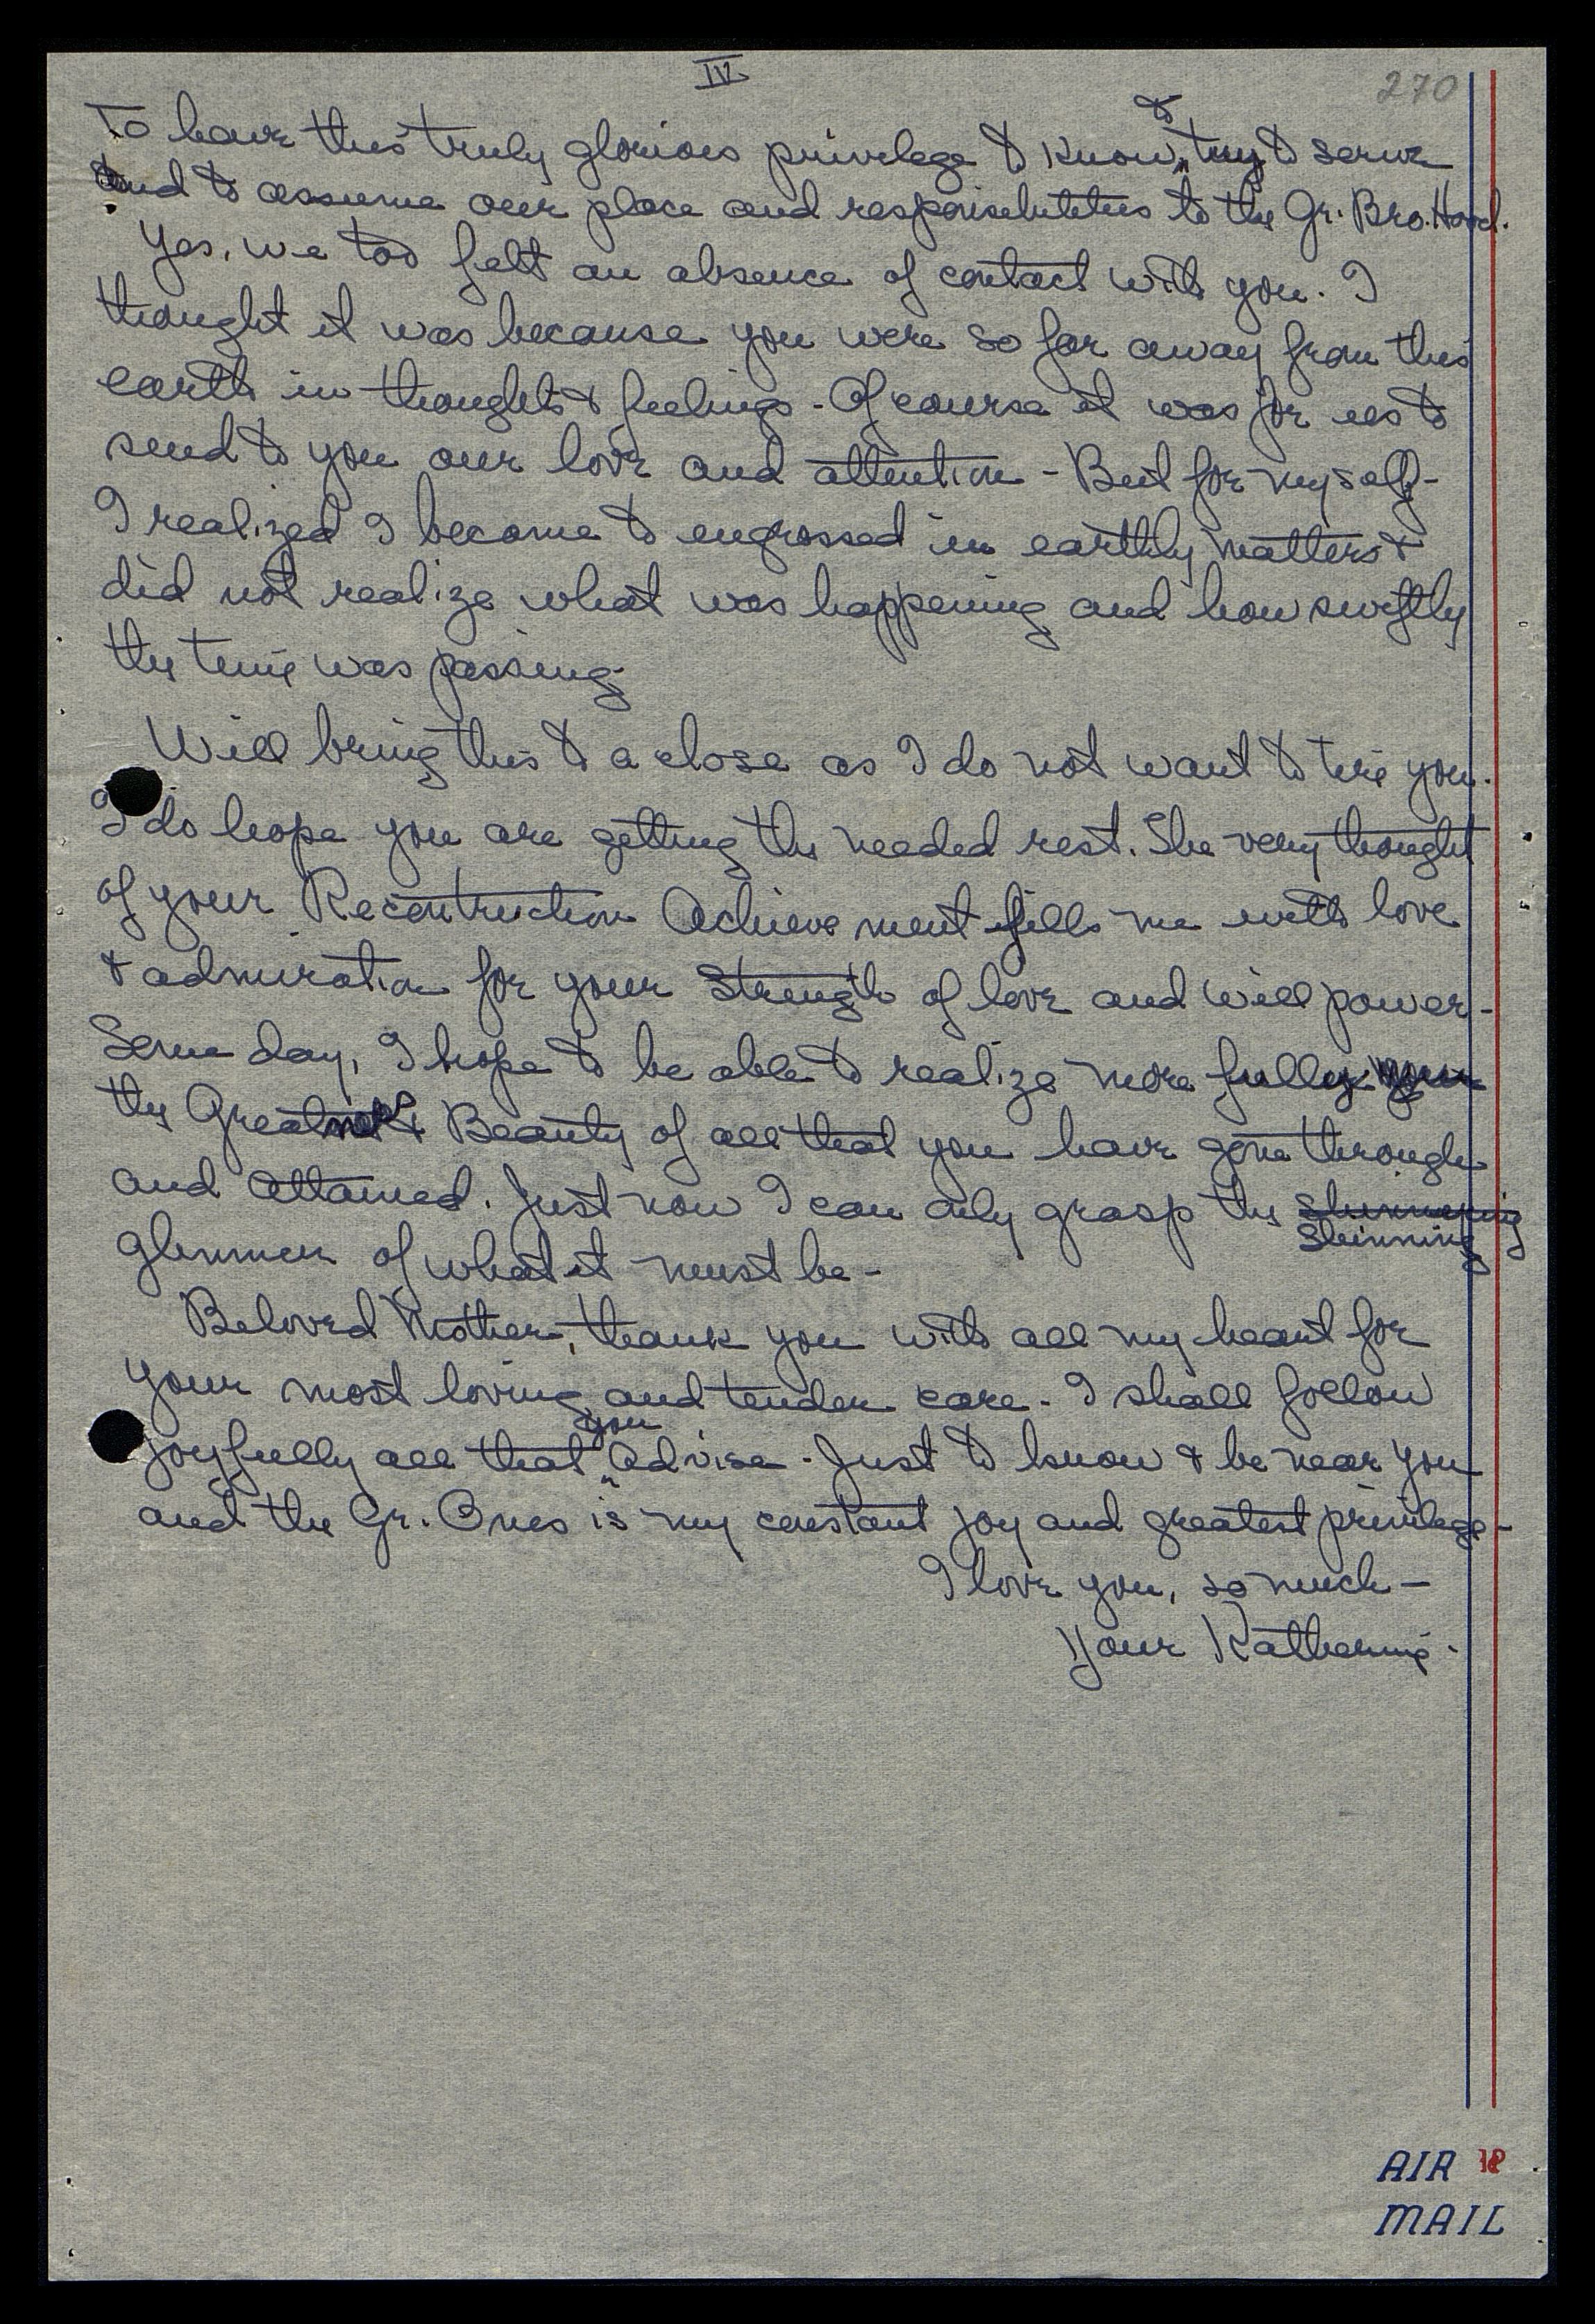 IV
270
To have this truly glorious privelege to know, & try to serve
and to assume our place and responsibilities to the Gr. Bro. Hood.
Yes, we too felt an absence of contact with you. I
thought it was because you were so far away from this
earth in thoughts & feelings - Of course it was for us to
send to you our love and attention - But for myself -
I realized I become to engrossed in earthly matters &
did not realize what was happening and how swiftly
the time was passing.
Will bring this to a close as I do not want to tire you.
I do hope you are getting the needed rest. The very thought
of your Recontruction Achievement fills me with love
& admiration for your Strength of love and will power -
Some day, I hope to be able to realize more fully
the Greatness & Beauty of all that you have gone through
and attained. Just now I can only grasp the shimmering
Shinning
glimmer of what it must be -
Beloved Mother, thank you with all my heart for
your most loving and tender care - I shall follow
joyfully all that you Advise - Just to know & be near you
and the Gr. Ones is my constant joy and greatest privilege -
I love you, so much -
Your Katherine.
AIR
MAIL